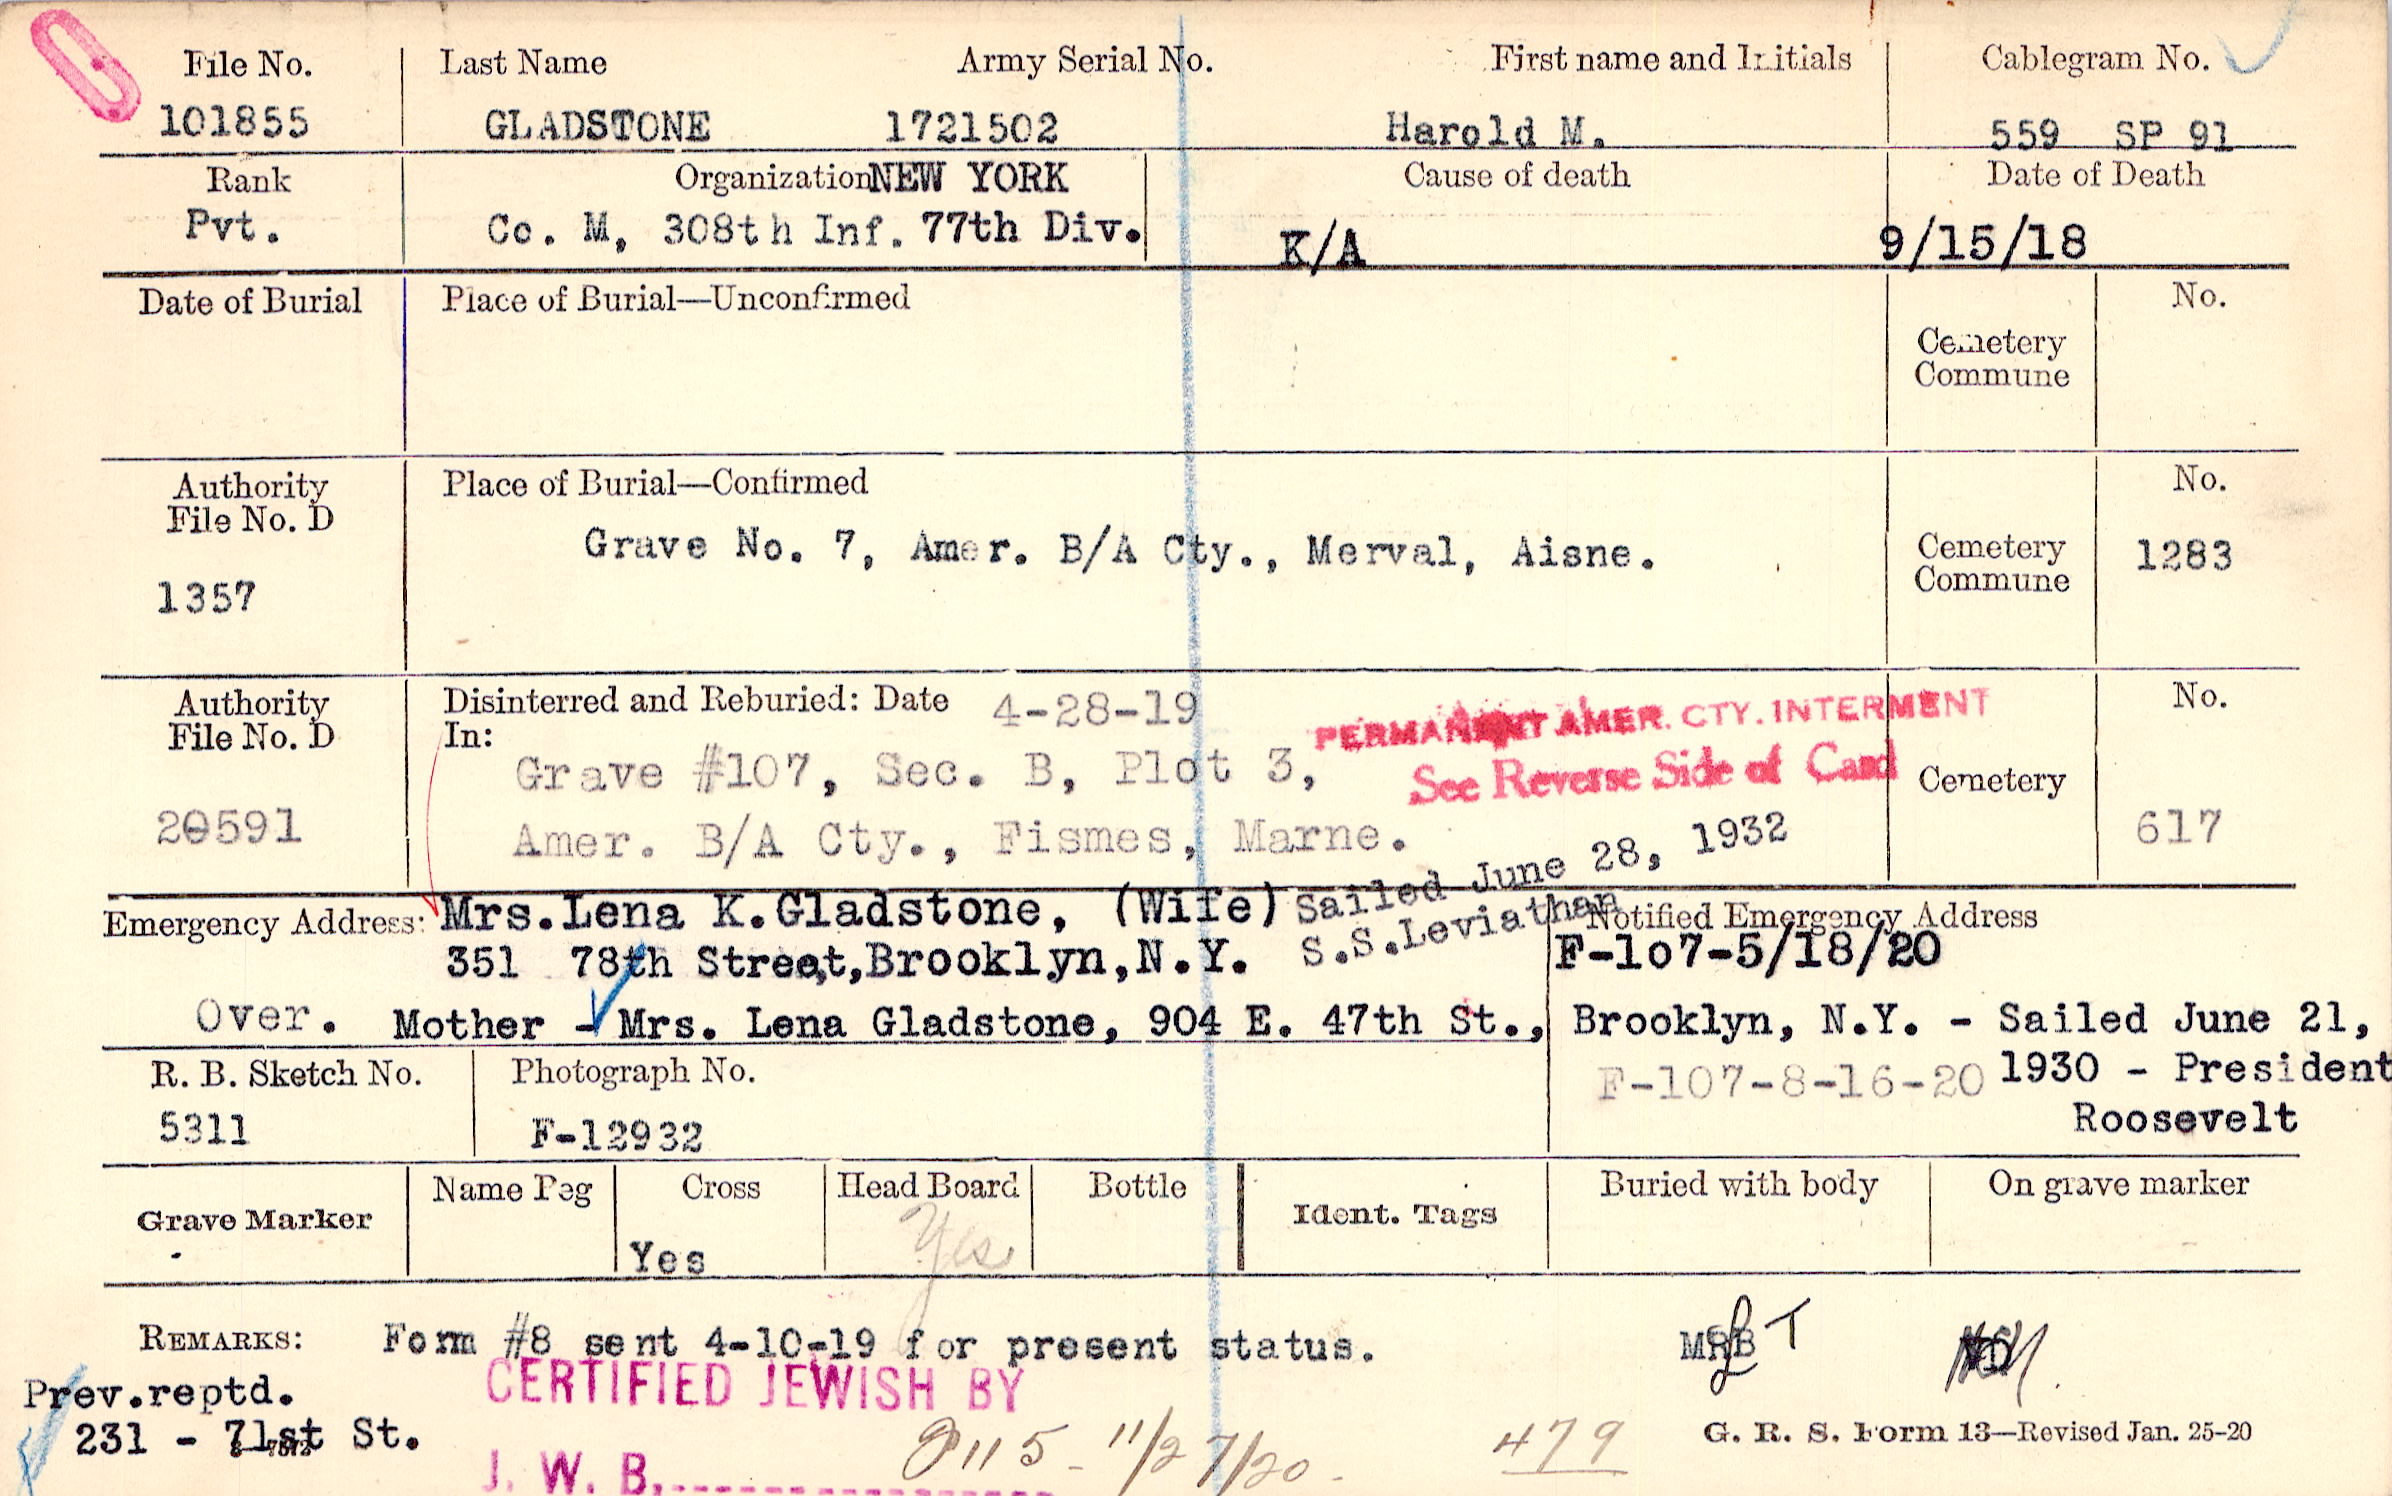 File No. Last Name Army Serial No. First name and Initials Cablegram No.
101855 GLADSTONE 1721502 Harold M. 559 SP 91
Rank Organization NEW YORK Cause of death Date of Death
Pvt. Co. M, 308th Inf. 77th Div. K/A 9/15/18
Date of Burial Place of Burial—Unconfirmed No.
Cemetery
Commune
Authority Place of Burial—Confirmed No.
File No. D
Grave No. 7, Amer. B/A Cty., Merval, Aisne. Cemetery 1283
Commune
1357
Authority Disinterred and Reburied: Date 4-28-19 PERMANENT AMER. CTY. INTERMENT No.
File No. D In:
Grave #107, Sec. B, Plot 3, See Reverse Side of Card Cemetery
20591 Amer. B/A Cty., Fismes, Marne. 617
Sailed June 28, 1932
S.S.Leviathan
Emergency Address: Mrs.Lena K.Gladstone, (Wife) Notified Emergency Address
351 78th Street,Brooklyn,N.Y. F-107-5/18/20
Over. Mother - Mrs. Lena Gladstone, 904 E. 47th St., Brooklyn, N.Y. - Sailed June 21,
R. B. Sketch No. Photograph No. F-107-8-16-20 1930 - President
5311 F-12932 Roosevelt
Grave Marker Name Peg Cross Head Board Bottle Ident. Tags Buried with body On grave marker
Yes Yes
REMARKS: Form #8 sent 4-10-19 for present status. MRB T
CERTIFIED JEWISH BY
Prev.reptd.
231 - 71st St. G. R. S. Form 13—Revised Jan. 25-20
J. W. B. 11/27/20 479